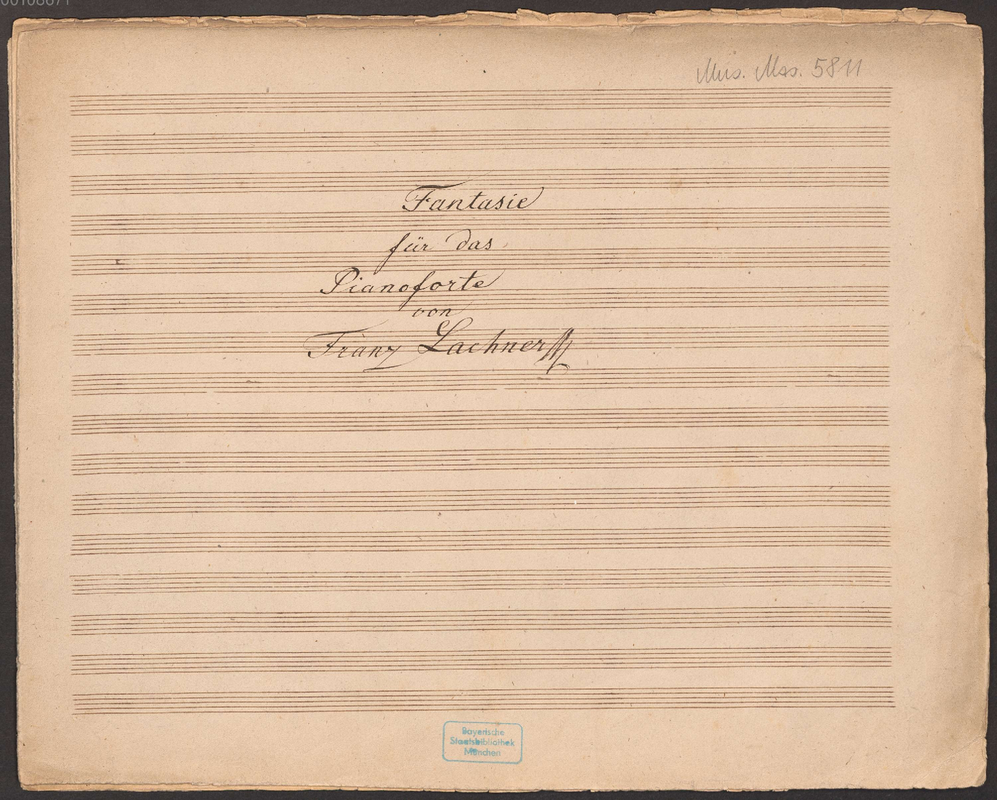 Mus. Mss. 5811
Fantasie
für das
Pianoforte
von
Franz Lachner
Bayerische
Staatsbibliothek
München